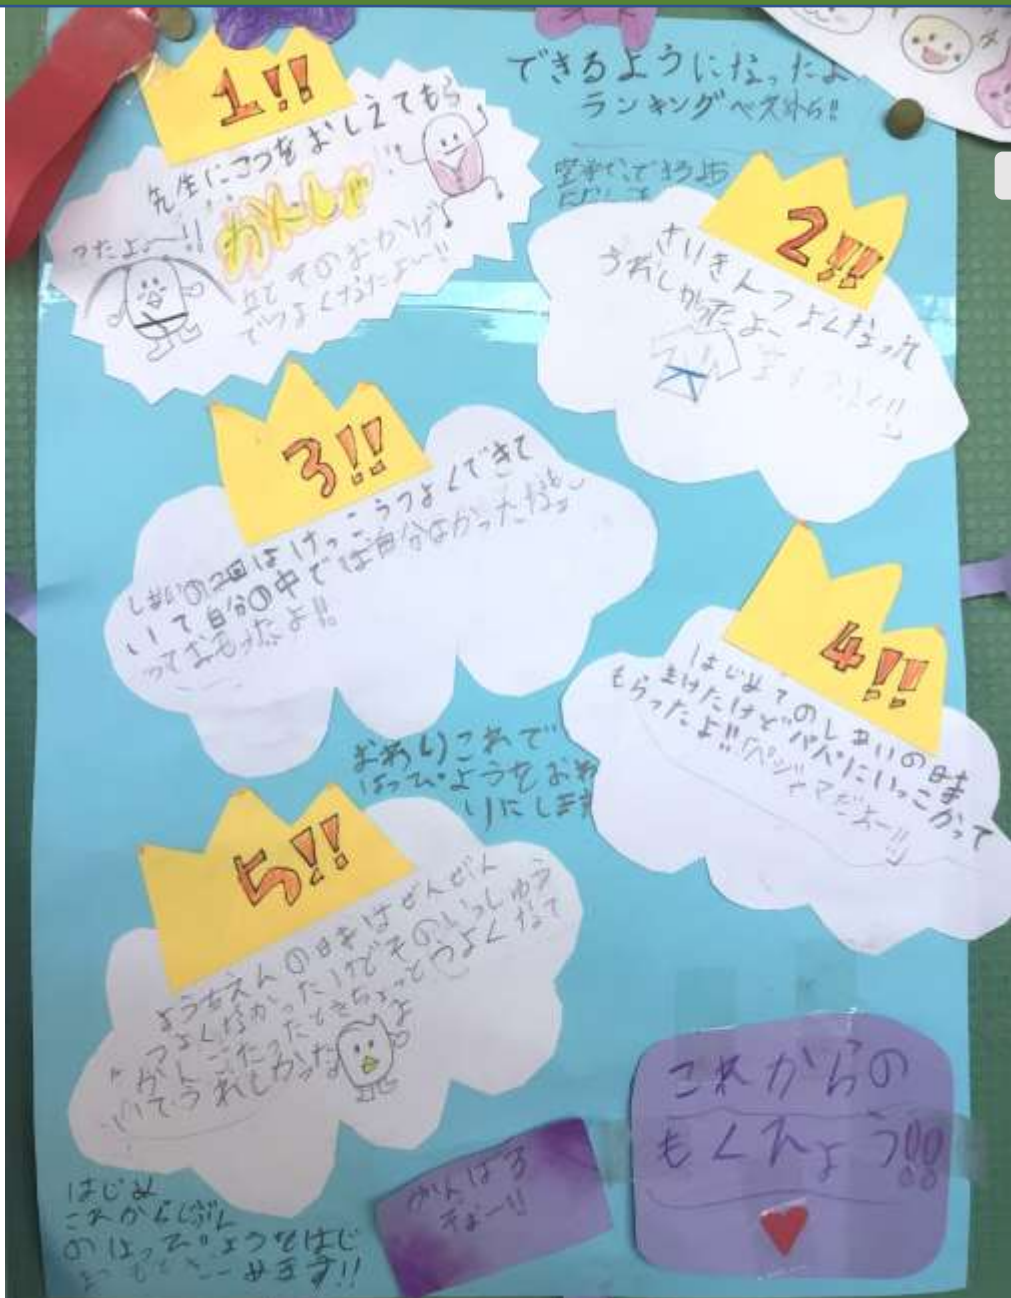 できるようになったよ
ランキングベスト5!!
空手だで
1!!
先生にこつをおしえてもら
ったよー!!
かんしゃ
そのおかげ
でつよくなたよー!!
2!!
さいきんつよくなって
うれしかったよー
3!!
しあいの2回はけっこうつよくできて
いて自分の中では自分なかった
っておもったよ!!
4!!
はじめてのしあいの時ま
まけたけどパパにいっこかって
もらったよ!!パジ
ャマだよー!!
おわりこれで
はっぴょうをおわ
りにします
5!!
ようちえんの時はぜんぜん
つよくなかったけどそのいっしゅう
かんごたったときちょっとつよくなて
いてうれしかったよ
はじめ
これからじぶん
のはっぴょうをはじ
めます!!
がんばる
ぞー!!
これからの
もくひょう!!